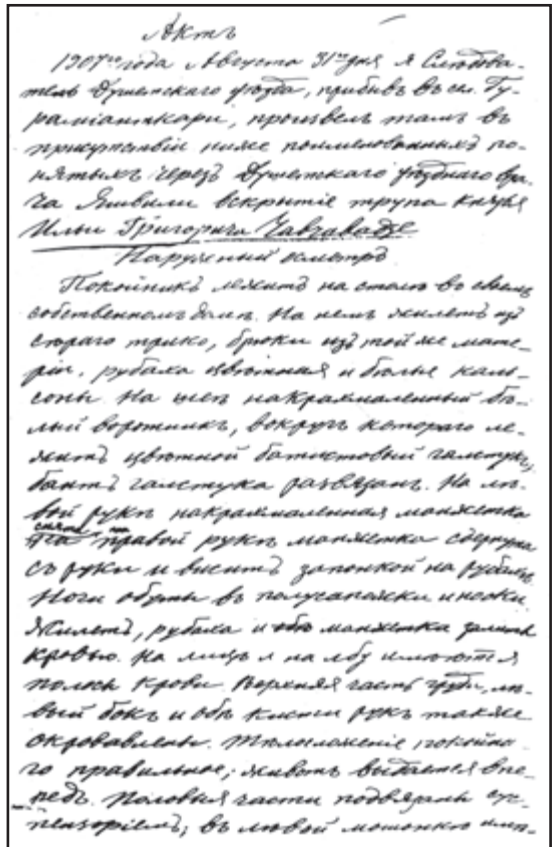 Актъ
1907го года Августа 31го дня я Слѣдова-
тель Душетскаго уѣзда, прибывъ въ сел. Гу-
раміанткари, произвелъ тамъ въ
присутствіи ниже поименованныхъ по-
нятыхъ черезъ Душетскаго уѣзднаго вра-
ча Яшвили вскрытіе трупа Князя
Ильи Григорича Чавчавадзе
Наружный осмотръ
Покойникъ лежитъ на столѣ въ своемъ
собственномъ домѣ. На немъ жилетъ изъ
сѣраго трико, брюки изъ той же мате-
ріи, рубаха цвѣтная и бѣлые каль-
соны. На шеѣ накрахмаленный бѣ-
лый воротникъ, вокругъ котораго ле-
житъ цвѣтной батистовый галстукъ,
бантъ галстука развязанъ. На лѣ-
вой рукѣ накрахмаленная манжетка
правой рукѣ манжетка сдернута
съ руки и виситъ запонкой на рубахѣ.
Ноги обуты въ полусапожки и носки
Жилетъ, рубаха и манжетка залиты
кровью. На лицѣ и на лбу имѣются
полосы крови. Верхняя часть груди, лѣ-
вый бокъ и обѣ кисти рукъ также
окровавлены. Тѣлосложеніе покойна-
го правильное; животъ выдается впе-
редъ. Половыя части подвязаны сус-
пензоріемъ; въ лѣвой мошонкѣ имѣ-